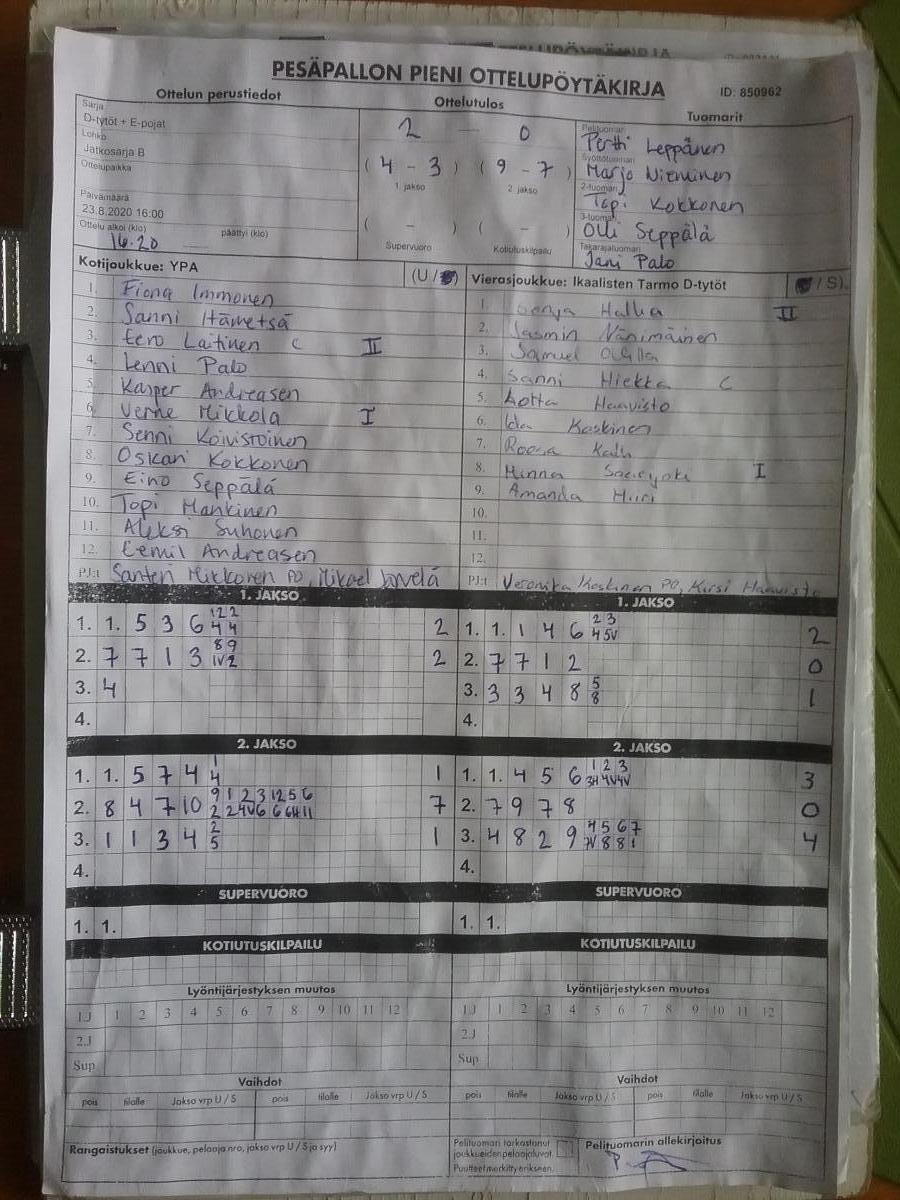 PESÄPALLON PIENI OTTELUPÖYTÄKIRJA
ID: 850962
Ottelun perustiedot
Ottelutulos
Tuomarit
Sarja
D-tytöt + E-pojat
Lohko
Jatkosarja B
Ottelupaikka
Päivämäärä
23.8.2020 16:00
Ottelu alkoi (klo) päättyi (klo)
16.20
2 — 0
( 4 - 3 ) ( 9 - 7 )
1. jakso 2. jakso
( - ) ( - )
Supervuoro Kotiutuskilpailu
Pelituomari
Pertti Leppänen
Syöttötuomari
Marjo Nieminen
2-tuomari
Topi Kokkonen
3-tuomari
Olli Seppälä
Takarajatuomari
Jani Palo
Kotijoukkue: YPA (U /
1. Fiona Immonen
2. Sanni Hämetsä
3. Eero Laitinen C II
4. Lenni Palo
5. Kasper Andreasen
6. Verne Mikkola I
7. Senni Koivistoinen
8. Oskari Kokkonen
9. Eino Seppälä
10. Topi Mankinen
11. Aleksi Suhonen
12. Eemil Andreasen
PJ:t Santeri Mikkonen PO, Mikael
Vierasjoukkue: Ikaalisten Tarmo D-tytöt / S)
1. Senja Halka II
2. Jasmin
3. Samuel
4. Sanni Hiekka C
5. Lotta Haavisto
6. Ida Koskinen
7. Roosa
8. Minna I
9. Amanda Hiiri
10.
11.
12.
PJ:t Veronika Koskinen PO, Kirsi Haavisto
1. JAKSO
1. 1. 5 3 6 12 2 2
4 4
2. 7 7 1 3 8 9 2
1V 2
3. 4
4.
1. JAKSO
1. 1. 1 4 6 2 3 2
4 5V
2. 7 7 1 2 0
3. 3 3 4 8 5 1
8
4.
2. JAKSO
1. 1. 5 7 4 1 1
4
2. 8 4 7 10 9 1 2 3 12 5 6 7
2 2 4V 6 6 6H 11
3. 1 1 3 4 2 1
5
4.
2. JAKSO
1. 1. 4 5 6 1 2 3 3
3H 4V 4V
2. 7 9 7 8 0
3. 4 8 2 9 4 5 6 7 4
7V 8 8 1
4.
SUPERVUORO
1. 1.
SUPERVUORO
1. 1.
KOTIUTUSKILPAILU
KOTIUTUSKILPAILU
Lyöntijärjestyksen muutos
1.J 1 2 3 4 5 6 7 8 9 10 11 12
2.J
Sup
Lyöntijärjestyksen muutos
1.J 1 2 3 4 5 6 7 8 9 10 11 12
2.J
Sup.
Vaihdot
pois tilalle Jakso vrp U / S pois tilalle Jakso vrp U / S
Vaihdot
pois tilalle Jakso vrp U / S pois tilalle Jakso vrp U / S
Rangaistukset (joukkue, pelaaja nro, jakso vrp U / S ja syy)
Pelituomari tarkastanut
joukkueiden pelaajaluvat.
Puutteet merkitty erikseen.
Pelituomarin allekirjoitus